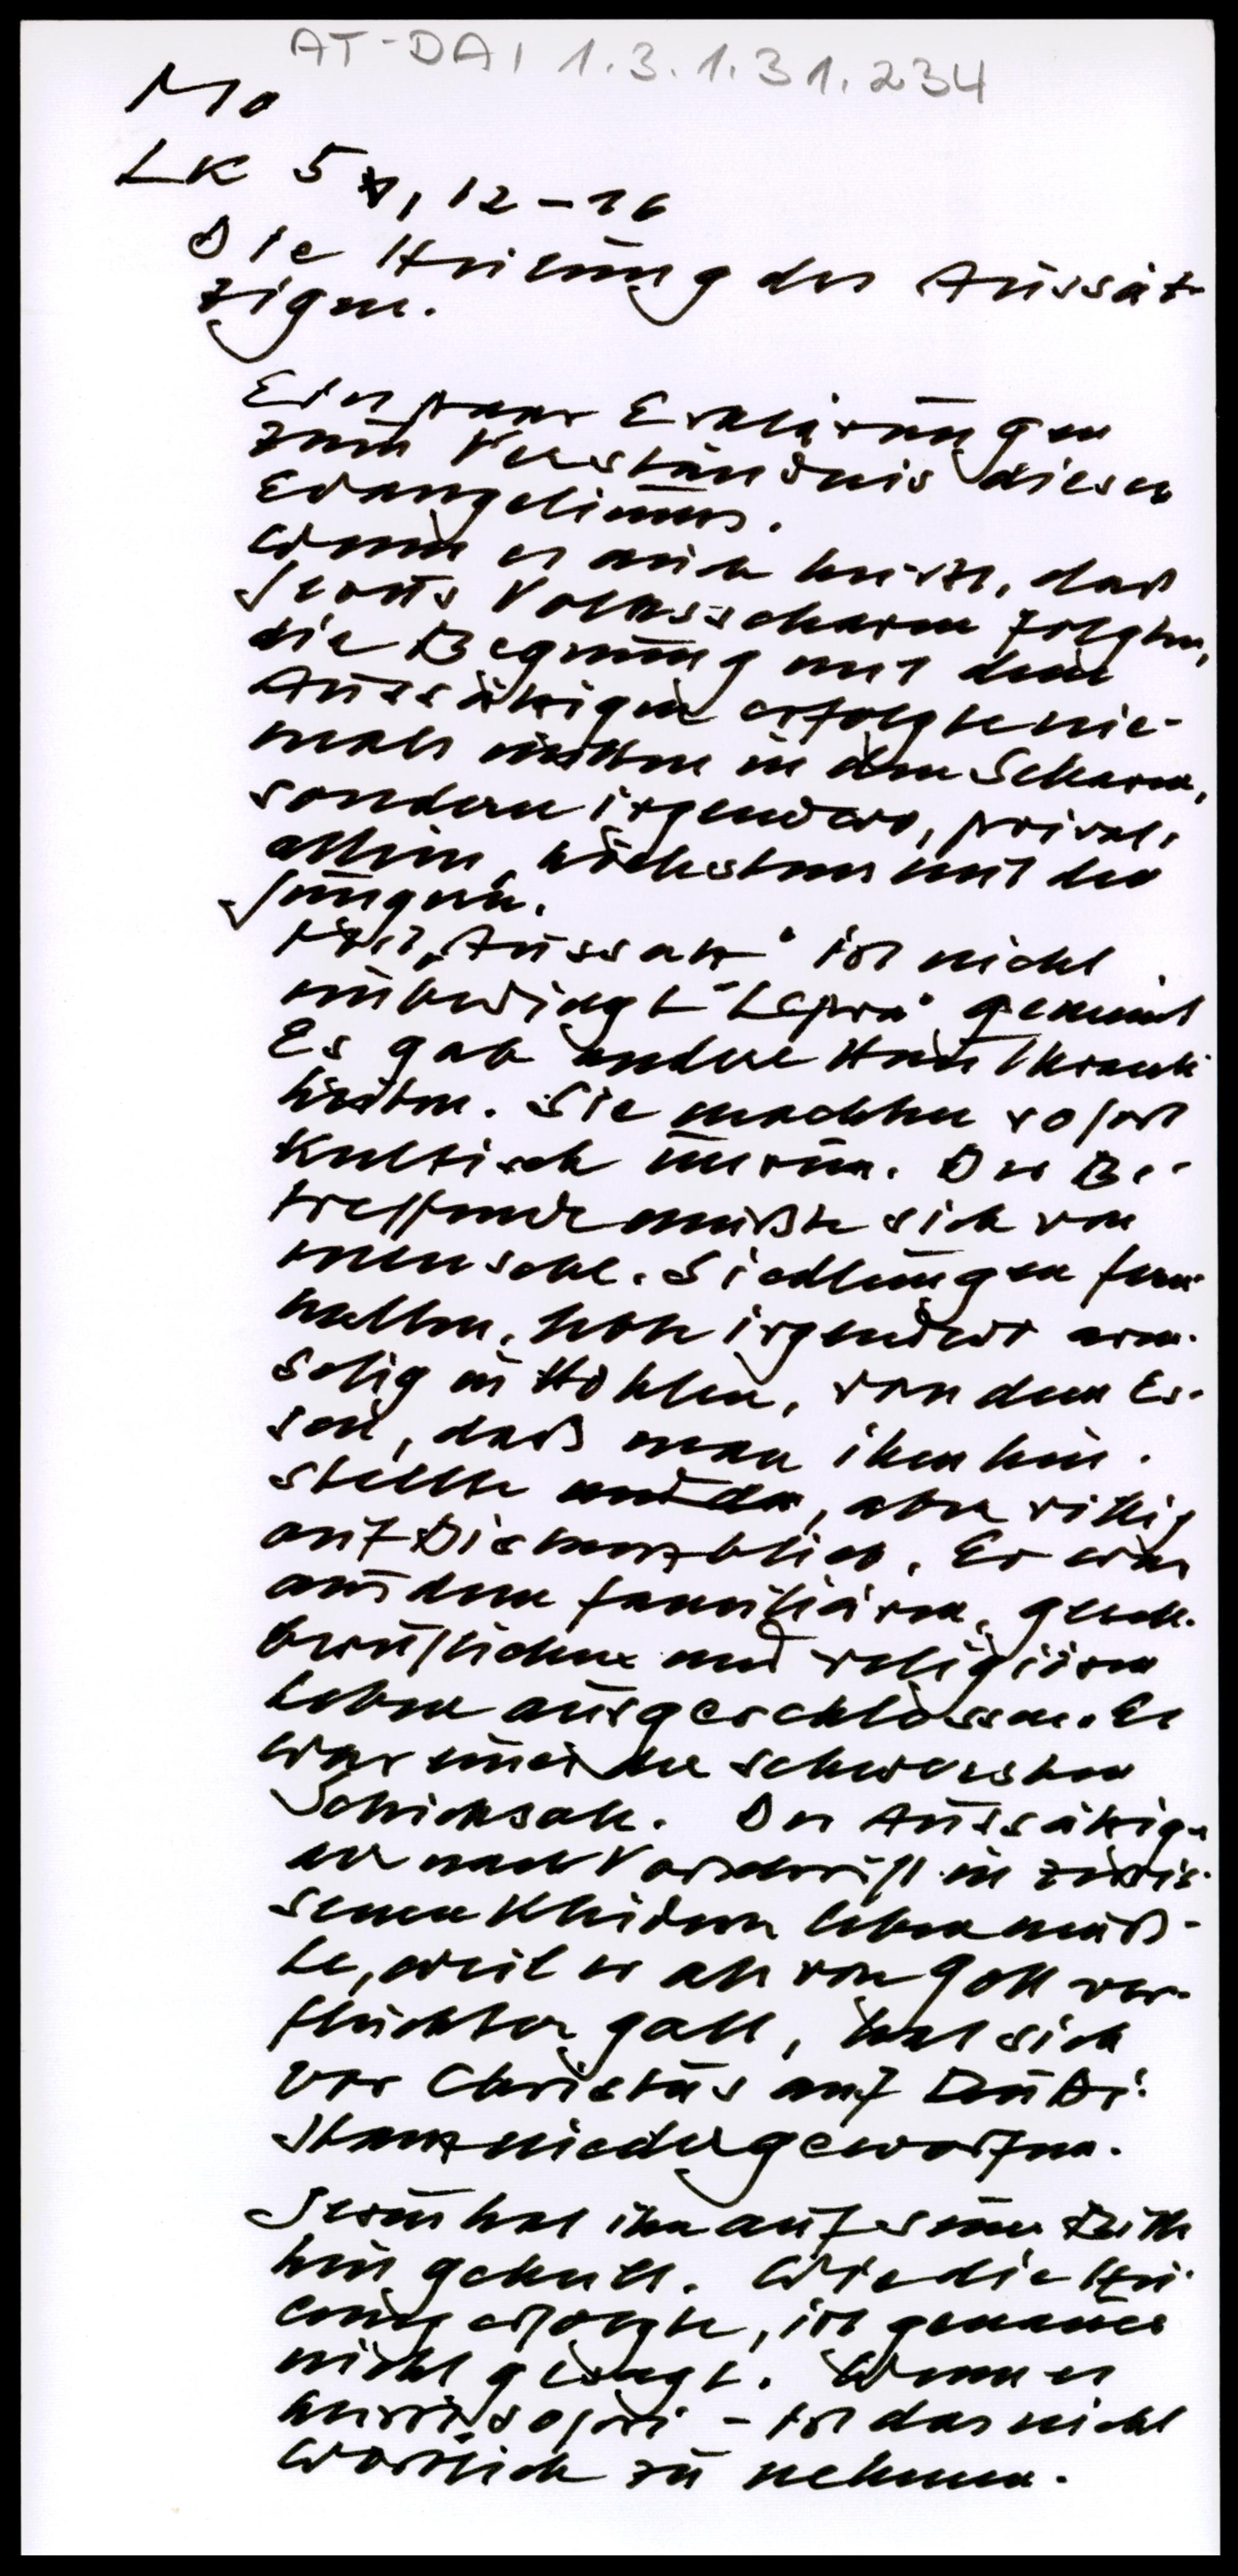 AT-DAI 1.3.1.31.234
Mo
Lk 5, 12-16
Die Heilung des Aussät-
zigen.
Ein paar Erklärungen
zum Verständnis dieses
Evangeliums.
Wenn es auch heißt, daß
Jesus Volksscharen folgten,
die Begnung mit dem
Aussätzigen erfolgte nie-
mals mitten in den Scharen,
sondern irgendwo, privat,
allein, höchstens mit den
Jüngern.
Mit „Aussatz" ist nicht
unbedingt "Lepra" gemeint
Es gab andere Hautkrank
heiten. Sie machten sofort
kultisch unrein. Der Be-
treffende mußte sich von
menschl. Siedlungen fern
halten, lebte irgendwo arm-
selig in Höhlen, von dem Es-
sen, daß man ihm hin-
stellte, aber völlig
auf Distanz blieb. Er war
aus dem familiären, gesell.
beruflichen und religiösen
Leben ausgeschlossen. Es
war eines der schwersten
Schicksale. Der Aussätzige
der nach Vorschrift in zerris-
senen Kleidern leben muß-
te, weil er als von Gott ver-
fluchter galt, hat sich
vor Christus auf Di-
stanz niedergeworfen.
Jesus hat ihn auf seine Bitte
hin geheilt. Wie die Hei-
lung erfolgte, ist genaues
nicht gesagt. Wenn es
heißt sofort - ist das nicht
wörtlich zu nehmen.